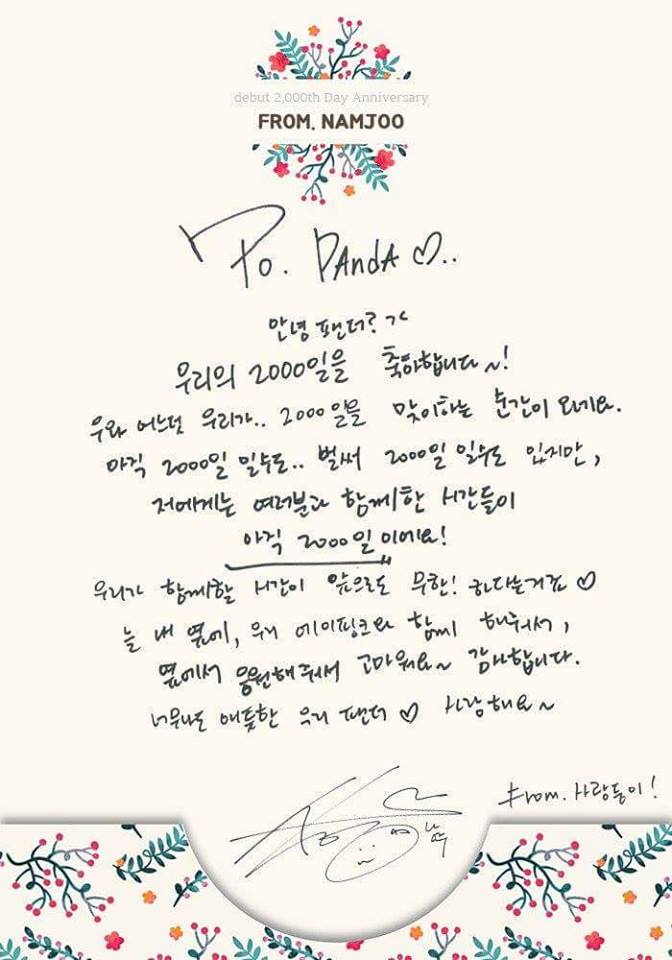 debut 2,000th Day Anniversary
FROM. NAMJOO
To. PAndA ♡..
안녕 팬더? ㅋ
우리의 2000일을 축하합니다~!
우와 어느덧 우리가.. 2000일을 맞이하는 순간이 오네요.
아직 2000일 일수도.. 벌써 2000일 일수도 있지만,
저에게는 여러분과 함께한 시간들이
아직 2000일이에요!
우리가 함께할 시간이 앞으로도 무한! 하다는거죠 ♡
늘 내 옆에, 우리 에이핑크와 함께 해줘서,
옆에서 응원해줘서 고마워요~ 감사합니다.
너무나도 애틋한 우리 팬더 ♡ 사랑해요~
From. 사랑둥이!
남주